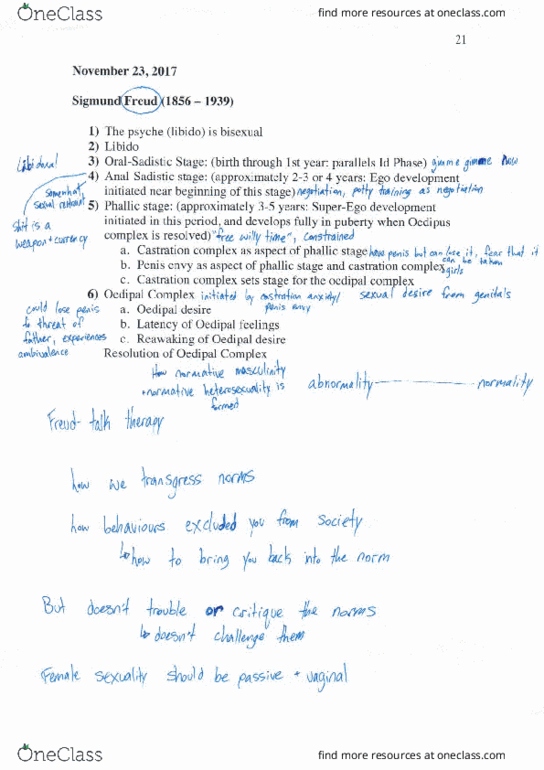 OneClass
find more resources at oneclass.com
21
November 23, 2017
Sigmund Freud (1856 – 1939)
1) The psyche (libido) is bisexual
2) Libido
Libidinal
3) Oral-Sadistic Stage: (birth through 1st year: parallels Id Phase) gimme gimme now
4) Anal Sadistic stage: (approximately 2-3 or 4 years: Ego development
initiated near beginning of this stage) negotiation, potty training as negotiation
somewhat
sexual
shit is a
weapon + currency
5) Phallic stage: (approximately 3-5 years: Super-Ego development
initiated in this period, and develops fully in puberty when Oedipus
complex is resolved) "free willy time", constrained
a. Castration complex as aspect of phallic stage have penis but can lose it, fear that it
can be taken
b. Penis envy as aspect of phallic stage and castration complex girls
c. Castration complex sets stage for the oedipal complex
6) Oedipal Complex initiated by castration anxiety/ sexual desire from genitals
penis envy
could lose penis
to threat of
father, experiences
ambivalence
a. Oedipal desire
b. Latency of Oedipal feelings
c. Reawaking of Oedipal desire
Resolution of Oedipal Complex
How normative masculinity
+ normative heterosexuality is
formed
abnormality normality
Freud- talk therapy
how we transgress norms
how behaviours excluded you from society
how to bring you back into the norm
But doesn't trouble or critique the norms
doesn't challenge them
Female sexuality should be passive + vaginal
OneClass
find more resources at oneclass.com